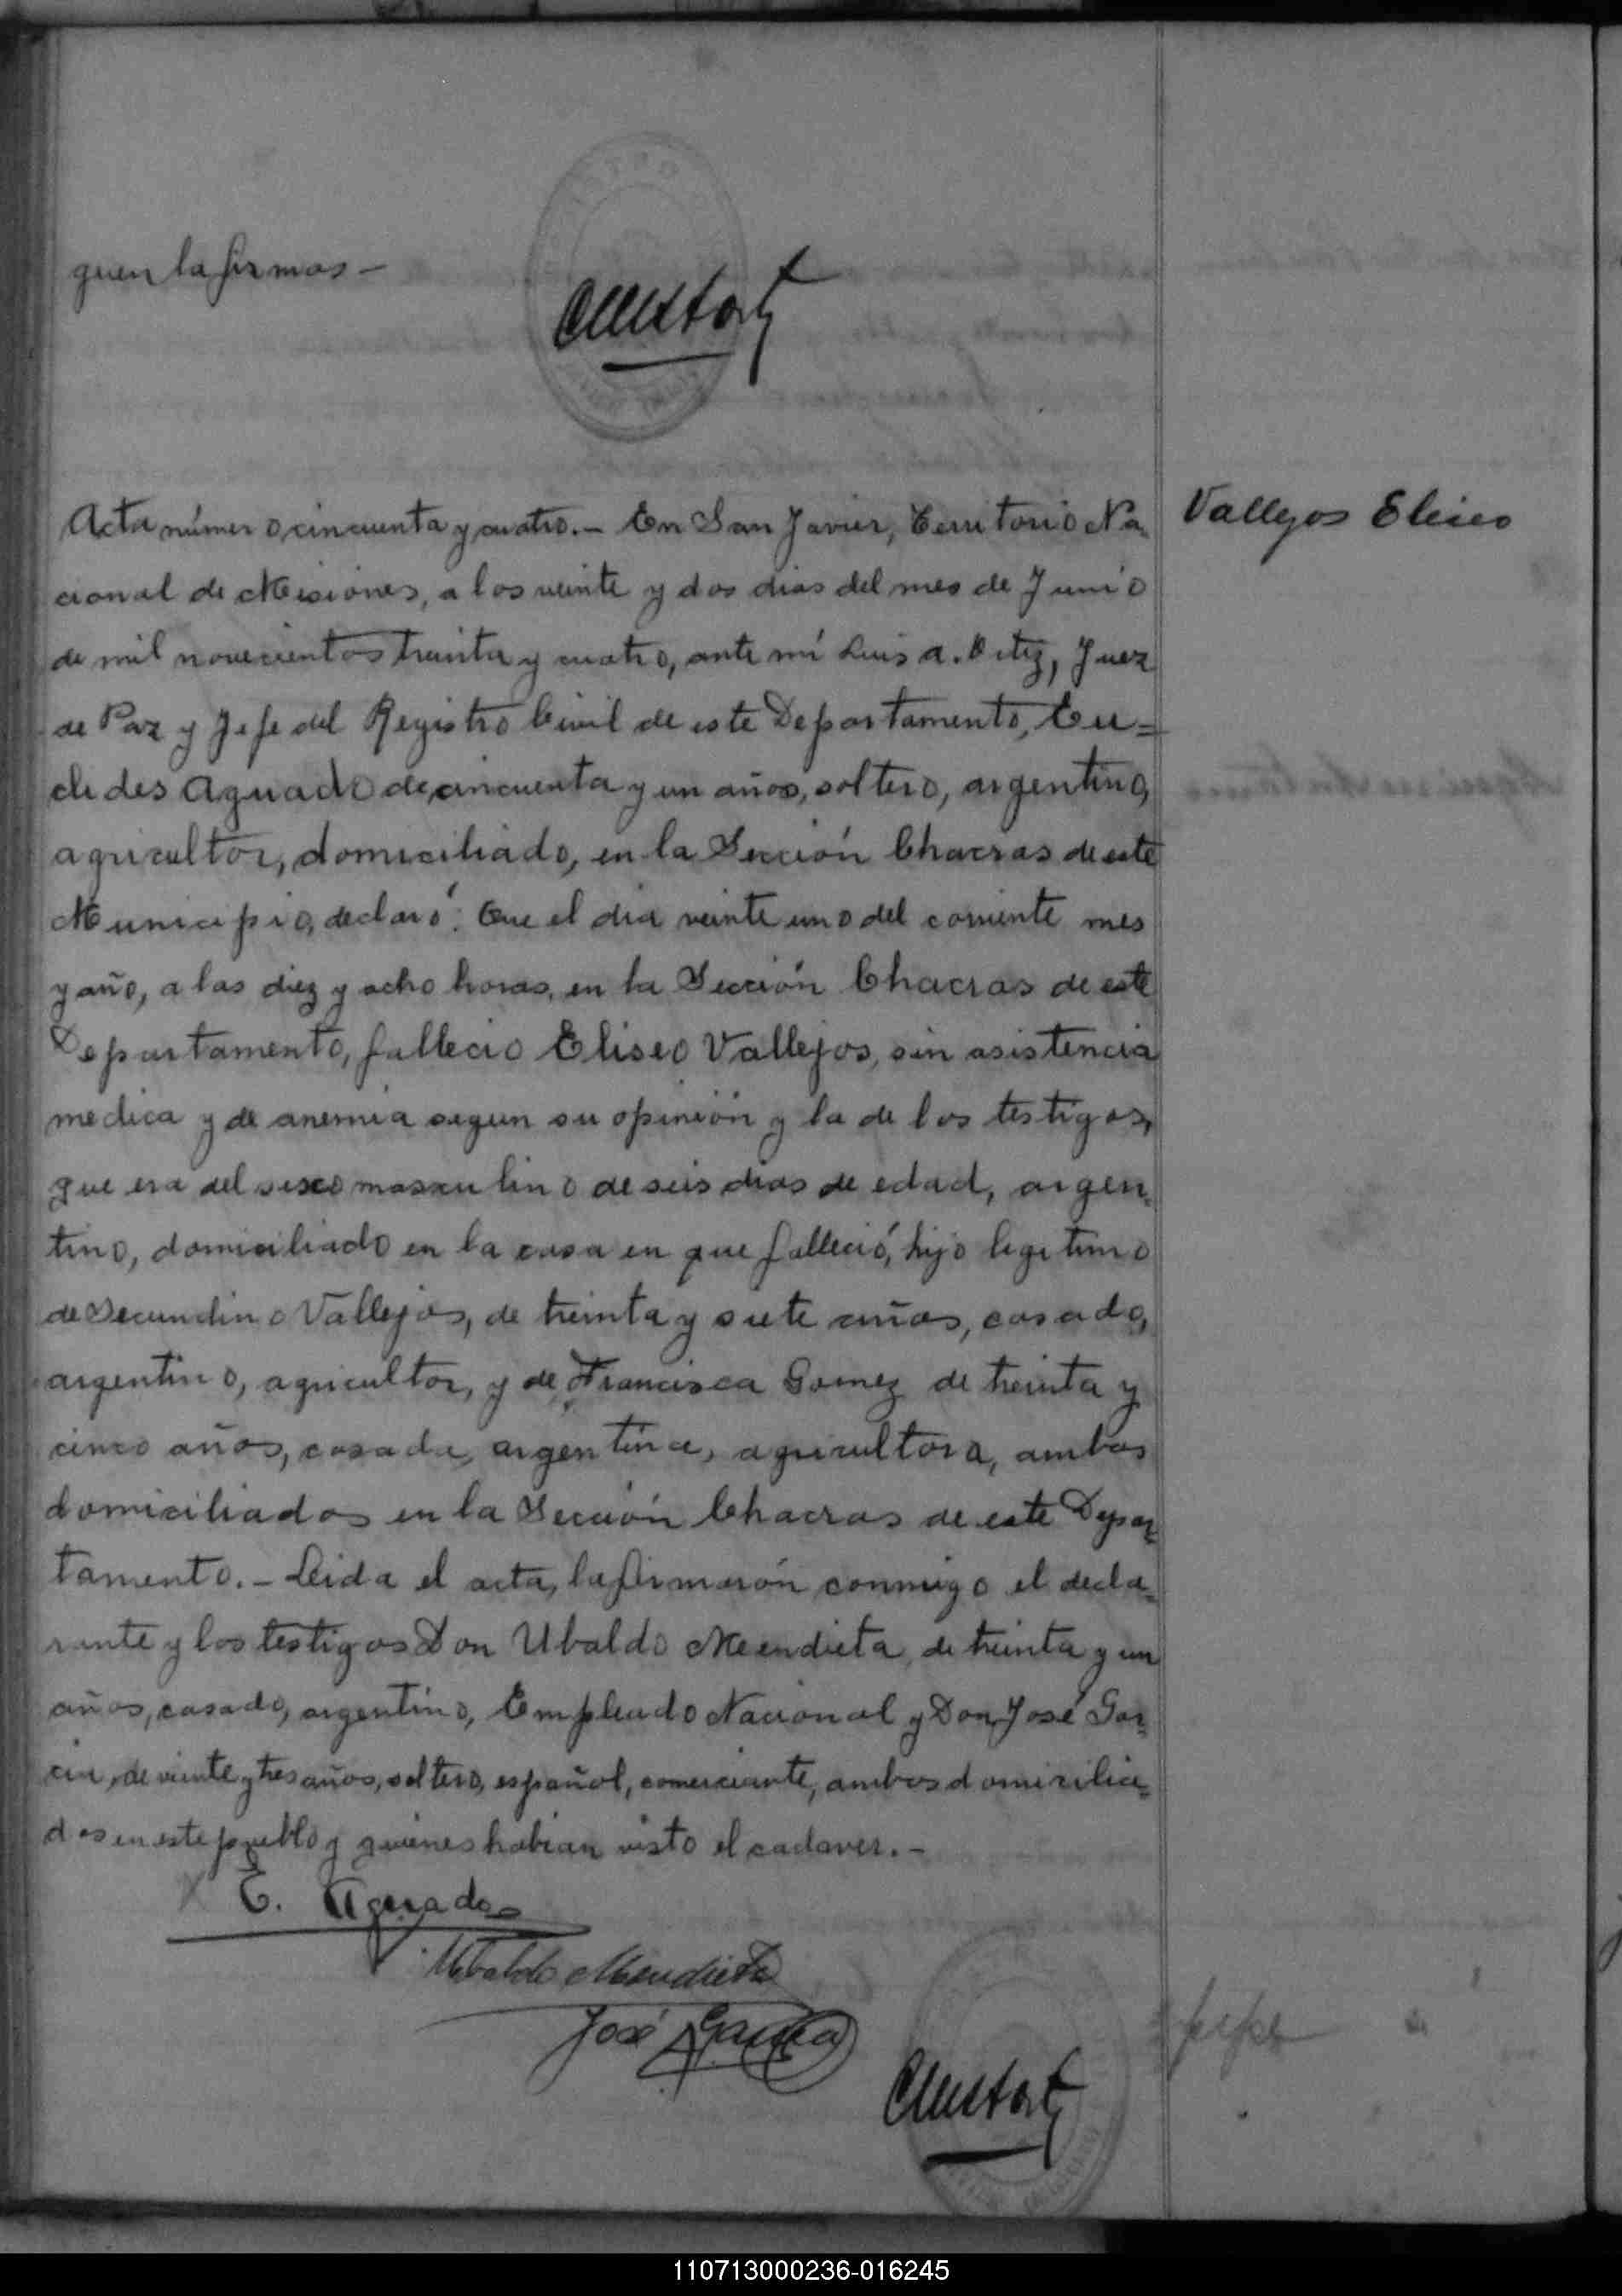 guen la firmas —
Acta número cincuenta y cuatro.- En San Javier, Territorio Na-
cional de Misiones, a los veinte y dos dias del mes de Junio
de mil novecientos treinta y cuatro, ante mí Luis A. Ortiz, Juez
de Paz y Jefe del Registro Civil de este Departamento, Eu=
clides Aguado de cincuenta y un años, soltero, argentino,
agricultor, domiciliado, en la Sección Chacras de este
Municipio, declaró: Que el dia veinte uno del corriente mes
y año, a las diez y ocho horas, en la Sección Chacras de este
Departamento, fallecio Eliseo Vallejos, sin asistencia
medica y de anemia segun su opinión y la de los testigos,
que era del sexo masculino de seis dias de edad, argen-
tino, domiciliado en la casa en que falleció, hijo legitimo
de Secundino Vallejos, de treinta y siete años, casado,
argentino, agricultor, y de Francisca Gomez de treinta y
cinco años, casada, argentina, agricultora, ambos
domiciliados en la Sección Chacras de este Depar-
tamento.- Leida el acta, la firmarón conmigo el decla-
rante y los testigos Don Ubaldo Mendieta, de treinta y un
años, casado, argentino, Empleado Nacional y Don José Gar-
cia, de veinte y tres años, soltero, español, comerciante, ambos domicilia-
dos en este pueblo y quienes habian visto el cadaver.-
Vallejos Eliseo
E. Aguado
Ubaldo Mendieta
José Garcia
110713000236-016245